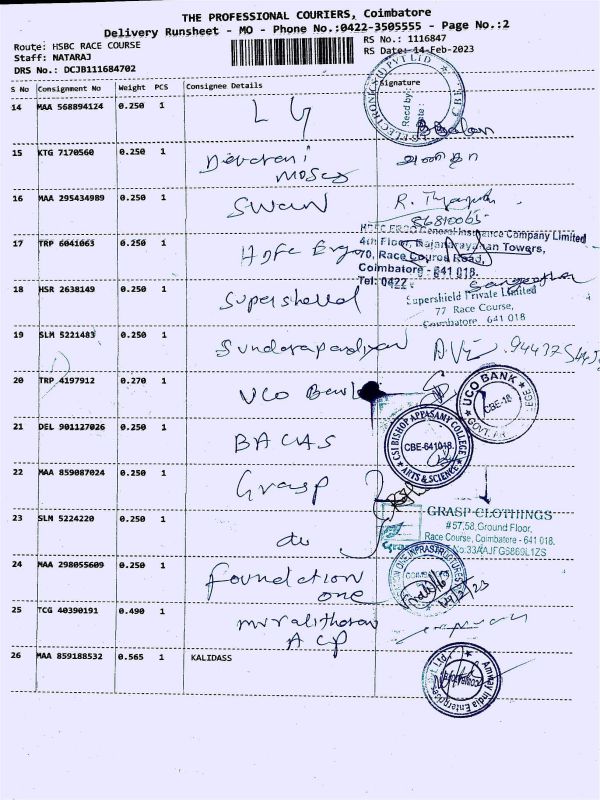 THE PROFESSIONAL COURIERS, Coimbatore
Delivery Runsheet - MO - Phone No.:0422-3505555 - Page No.:2
Route: HSBC RACE COURSE
Staff: NATARAJ
DRS No.: DCJB111684702
RS No.: 1116847
RS Date: 14-Feb-2023
S No Consignment No Weight PCS Consignee Details Signature
14 MAA 568894124 0.250 1 LG
15 KTG 7170560 0.250 1 Devarani
Moses
அனிதா
16 MAA 295434989 0.250 1 SWAN
17 TRP 6041063 0.250 1 HDFC Ergo
HDFC ERGO General Insurance Company Limited
4th Floor, Rajanarayanan Towers,
70, Race Course Road,
Coimbatore - 641 018.
Tel: 0422
18 HSR 2638149 0.250 1 Supershield
Supershield Private Limited
77 Race Course,
Coimbatore 641 018
19 SLM 5221483 0.250 1 Sundarapandiyan
20 TRP 4197912 0.270 1 UCO Bank
UCO BANK
CBE-18
21 DEL 901127026 0.250 1 BACAS
CSI BISHOP APPASAMY COLLEGE
CBE-641018.
ARTS & SCIENCE
22 MAA 859087024 0.250 1 Grasp
23 SLM 5224220 0.250 1 do
GRASP CLOTHINGS
#57,58, Ground Floor,
Race Course, Coimbatore - 641 018.
24 MAA 298055609 0.250 1 foundation
one
14/2/23
25 TCG 40390191 0.490 1 Muralitharan
ACP
26 MAA 859188532 0.565 1 KALIDASS
Amway India Enterprises Pvt. Ltd.